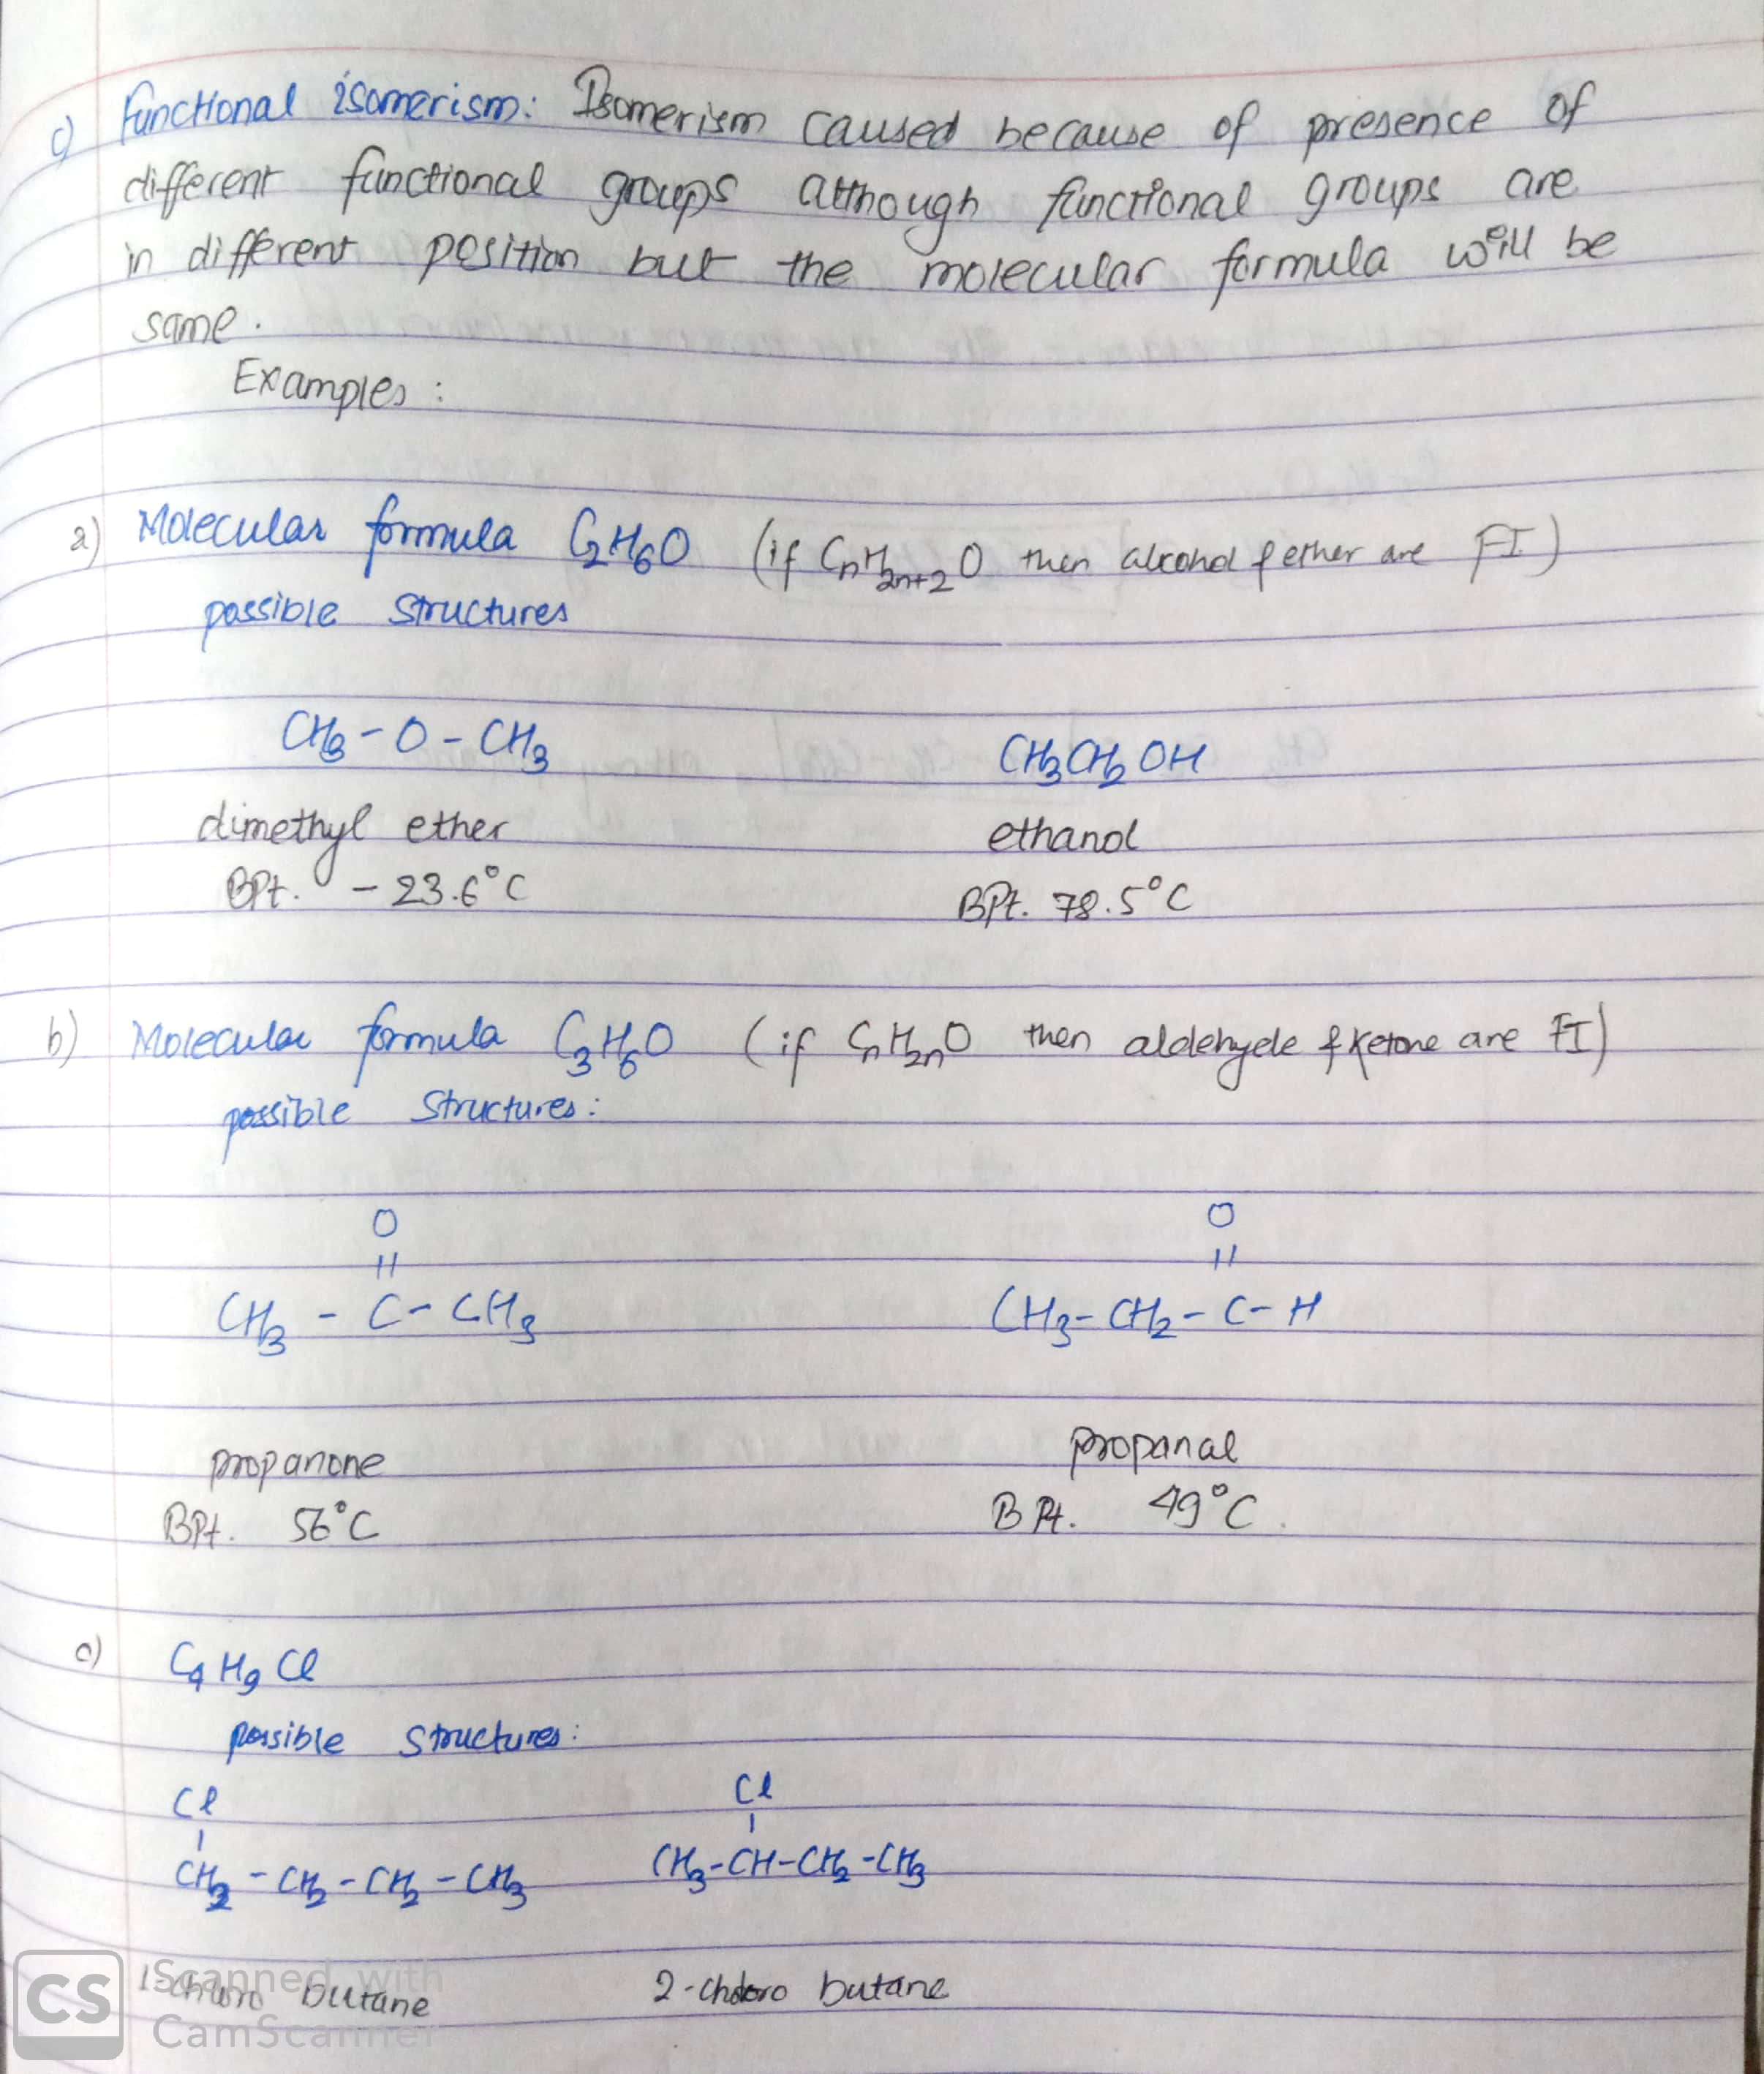 c) Functional isomerism: Isomerism caused because of presence of
different functional groups although functional groups are
in different position but the molecular formula will be
same.
Examples :
a) Molecular formula C₂H₆O (if CₙH₂ₙ₊₂O then alcohol & ether are FI)
possible structures
CH₃-O-CH₃ CH₃CH₂OH
dimethyl ether ethanol
BPt. -23.6°C BPt. 78.5°C
b) Molecular formula C₃H₆O (if CₙH₂ₙO then aldehyde & Ketone are FI)
possible structures:
O O
|| ||
CH₃ - C - CH₃ CH₃-CH₂-C-H
propanone propanal
BPt. 56°C BPt. 49°C.
c) C₄H₉Cl
possible structures:
Cl Cl
| |
CH₂-CH₂-CH₂-CH₃ CH₃-CH-CH₂-CH₃
1-chloro butane 2-chloro butane
CS Scanned with
CamScanner